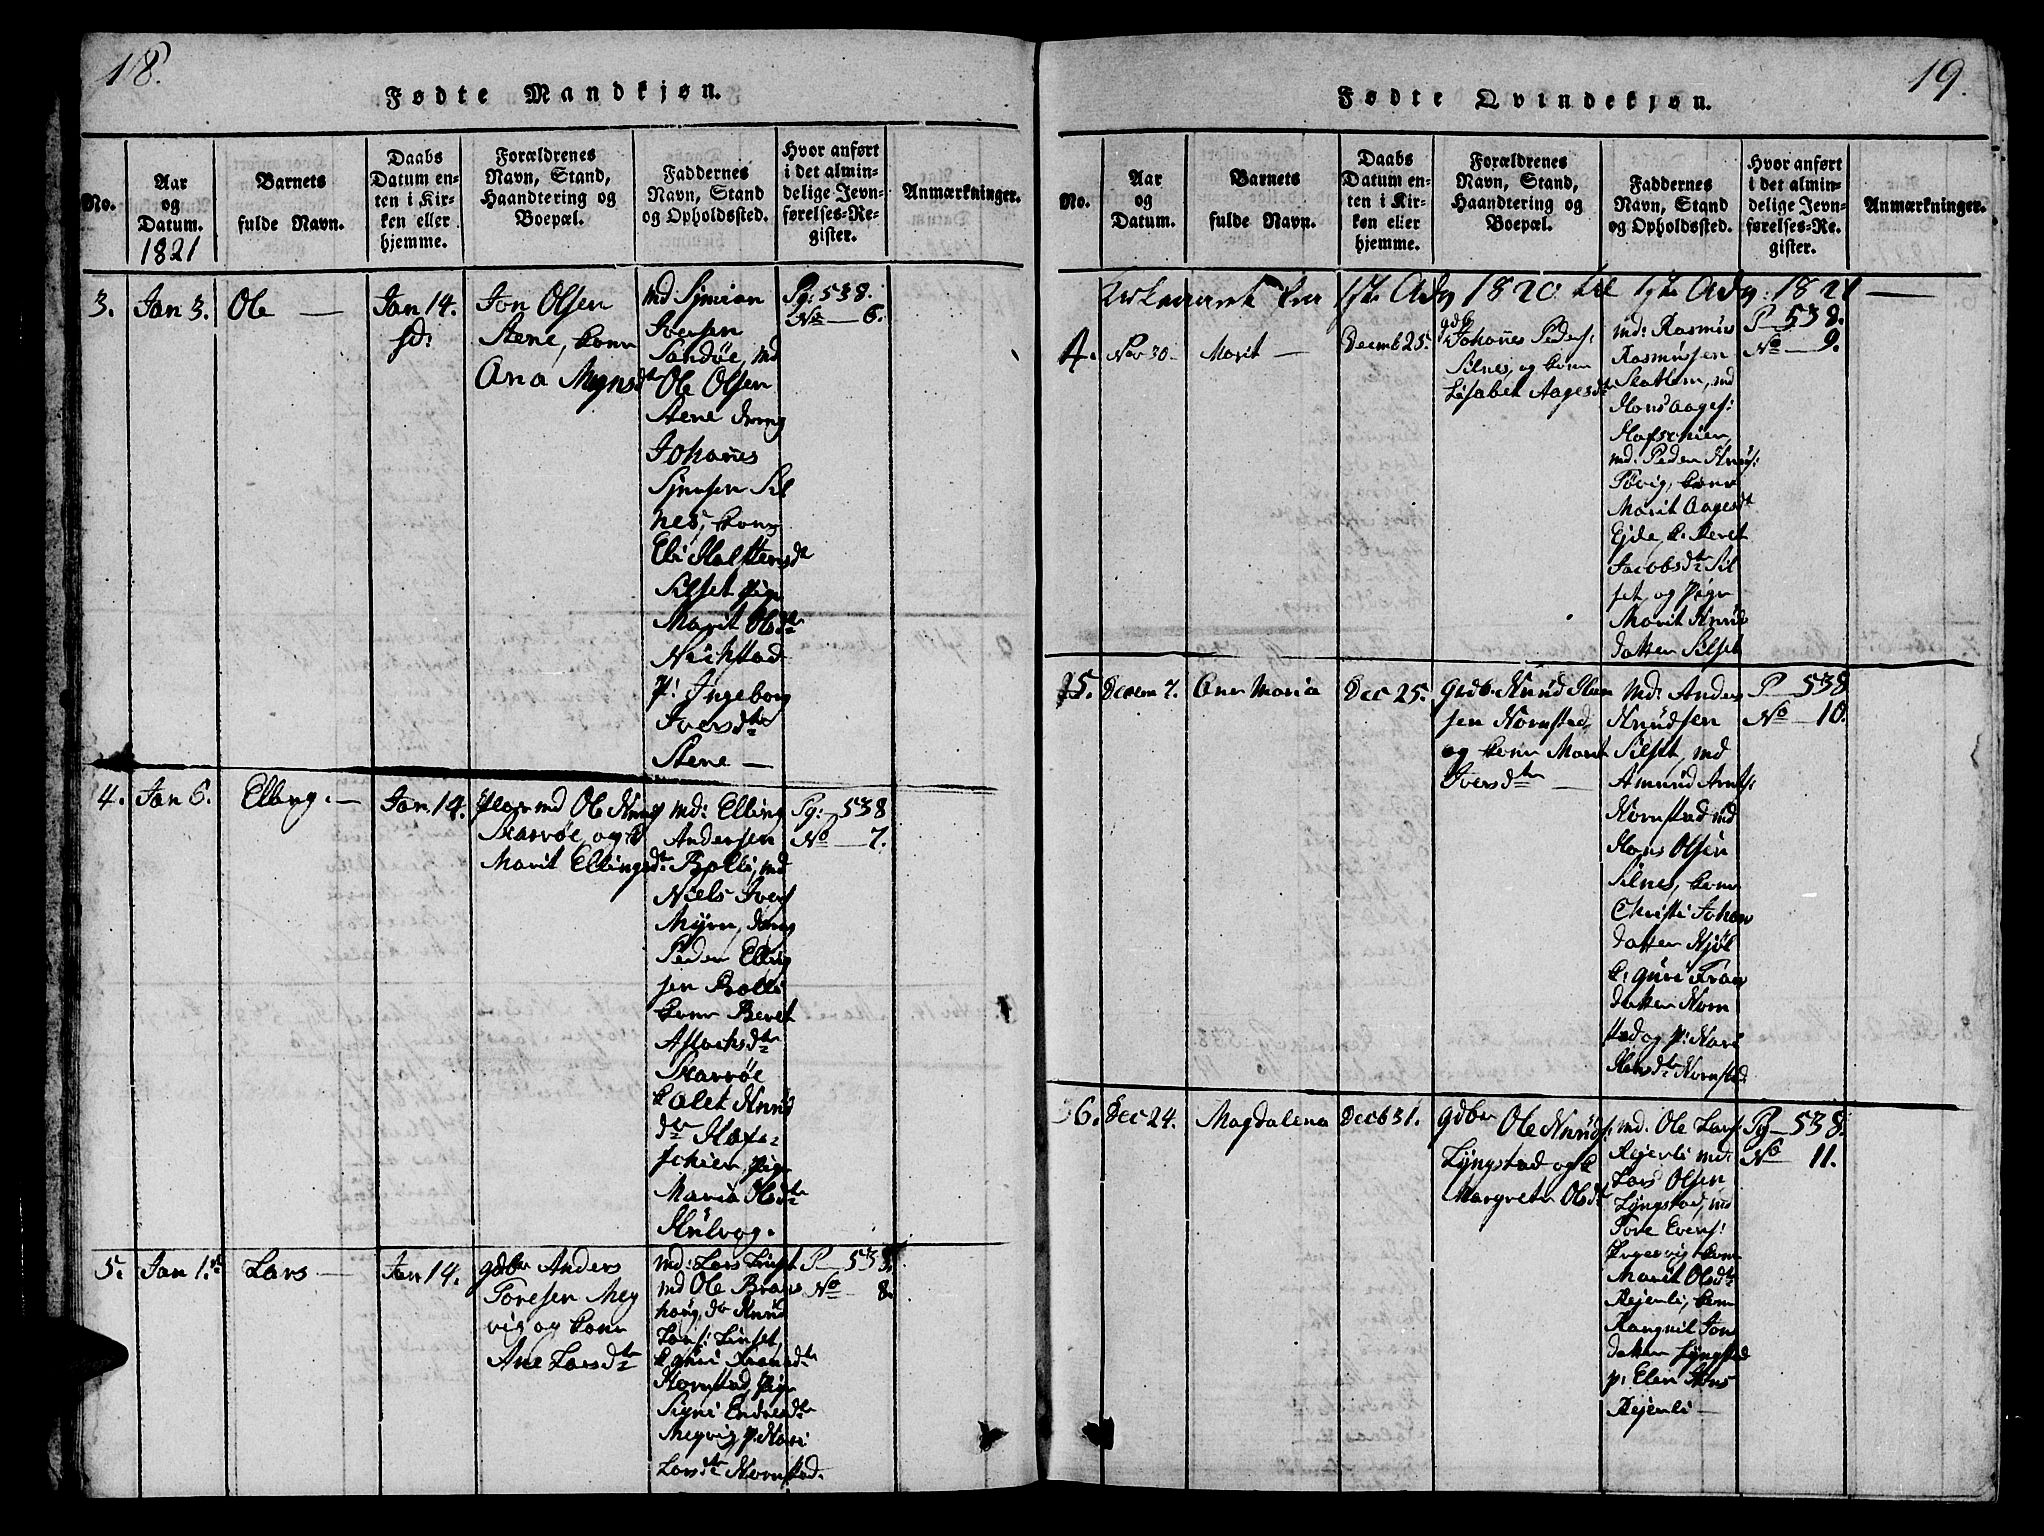 18.
Fødte Mandkjøn.
No.
Aar
og
Datum.
1821
Barnets
fulde Navn.
Daabs
Datum en-
ten i Kir-
ken eller
hjemme.
Forældrenes
Navn, Stand,
Haandtering og
Boepæl.
Faddernes
Navn, Stand
og Opholdssted.
Hvor anført
i det almin-
delige Jevn-
førelses-Re-
gister.
Anmærkninger.
3.
Jan 3.
Ole —
Jan 14.
sd:
Jon Olsen
Stene, kone
Ana Mognsdtr
md:
Iversen
Sandøe, md
Ole Olsen
Stene dreng
Johañes
Sil
nes, kone
Eli Halstensdtr
Silset pige
Marit Olsdtr
P: Ingeborg
Iversdtr
Stene —
Pg: 538.
No — 6.
4.
Jan 6.
Elling. —
Jan. 14.
md Ole Knuds
Karvøe, og k
Marit Ellingsdtr
md: Elling
Andersen
Bolli, md
Niels Ivers
Myren, dreng
Peder Elling
sen Bolli
kone Beret
Aslachsdtr
Karvøe
Knuds
dtr
pige
Maria Olsdtr
Pg: 538
No — 7.
5.
Jan 1.ste
Lars —
Jan 14.
gdbr Anders
Toresen Meg
vig og kone
Ane Larsdtr
md: Lars Linset
md Ole Brans
houg, dr Knud
Lars: Linset,
k guri
Hornstad, pige
Signi Endresdtr
Megvig p. Kari
Larsdtr Hornstad.
P — 538.
No — 8.
19.
Fødte Qvindekjøn.
No.
Aar
og
Datum.
Barnets
fulde Navn.
Daabs
Datum en-
ten i Kir-
ken eller
hjemme.
Forældrenes
Navn, Stand,
Haandtering og
Boepæl.
Faddernes
Navn, Stand
og Opholdssted.
Hvor anført
i det almin-
delige Jevn-
førelses-Re-
gister.
Anmærkninger.
Kirkeaaret fra 1ste Adv 1820 til 1ste Adv: 1821 —
4.
Nov 30 —
Marit —
Decemb 25.
gdb
Johañes Peders:
Silnes, og kone
Lisabet Aagesdtr
md: Rasmus
Rasmussen
md
Hans Aages:
md: Peder Knus:
Tøvig, kone
Marit Aagesdtr
Ejde, k. Beret
Jacobsdtr Sil
set og Pige
Marit Knuds
datter Silset
P — 538.
No — 9.
5.
Decem 7.
Ane Maria
Dec 25.
gdbr Knud
sen Hornstad,
og kone Marit
Iversdtr —
md: Anders
Knudsen
Silset, md
Amund Arnts:
Hornstad md
Hans Olsen
Silnes, kone
Christi Johans
datter Kjøl
k: guri
datter Horn
stad og p: Kari
Hornstad
P — 538
No — 10.
6.
Dec 24.
Magdalena
Decb 31.
gdbr Ole Knuds:
Lyngstad og k
Margrete Olsdtr
md. Ole Lars:
Rejerli md:
Lars Olsen
Lyngstad, md
Tore Evens:
kone
Marit Olsdtr
Rejerli, kone
Rangnil Jons
datter Lyngstad
p: Elen
Rejerli —
Pg — 538.
No 11.